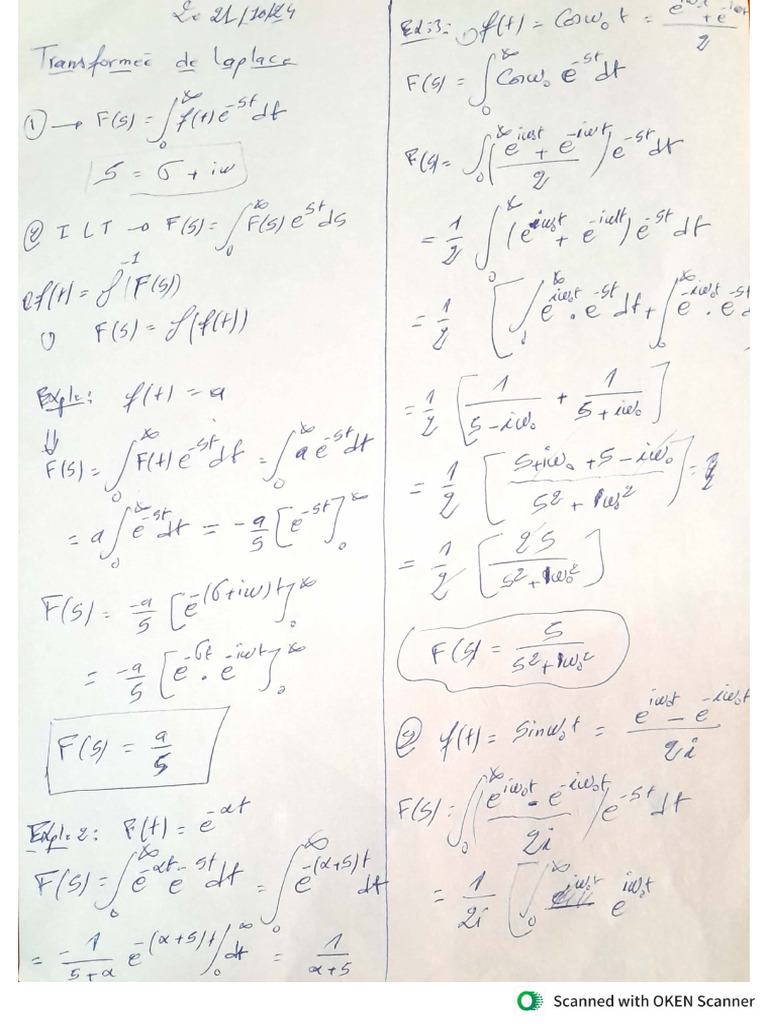 Le 21/10/24
Transformée de Laplace
① → F(s) = ∫₀^∞ f(t) e^{-st} dt
s = σ + iω
② I L T → F(s) = ∫₀^∞ F(s) e^{st} ds
f(t) = ℒ^{-1}(F(s))
F(s) = ℒ(f(t))
Expl: f(t) = a
⇓
F(s) = ∫₀^∞ F(t) e^{-st} dt = ∫₀^∞ a e^{-st} dt
= a ∫₀^∞ e^{-st} dt = -a/s [e^{-st}]₀^∞
F(s) = -a/s [e^{-(σ+iω)t}]₀^∞
= -a/s [e^{-σt} . e^{-iωt}]₀^∞
F(s) = a/s
Expl 2: F(t) = e^{-αt}
F(s) = ∫₀^∞ e^{-αt} e^{-st} dt = ∫₀^∞ e^{-(α+s)t} dt
= -1/(s+α) e^{-(α+s)t} |₀^∞ dt = 1/(α+s)
3: 1) f(t) = Cosω₀t = (e^{iω₀t} + e^{-iω₀t})/2
F(s) = ∫₀^∞ Cosω₀ e^{-st} dt
F(s) = ∫₀^∞ ((e^{iω₀t} + e^{-iω₀t})/2) e^{-st} dt
= 1/2 ∫₀^∞ (e^{iω₀t} + e^{-iω₀t}) e^{-st} dt
= 1/2 [∫₀^∞ e^{iω₀t} . e^{-st} dt + ∫₀^∞ e^{-iω₀t} . e^{-st} d
= 1/2 [1/(s-iω₀) + 1/(s+iω₀)]
= 1/2 [(s+iω₀ + s-iω₀)/(s² + ω₀²)] =
= 1/2 [2s/(s² + ω₀²)]
F(s) = s/(s² + ω₀²)
② f(t) = sinω₀t = (e^{iω₀t} - e^{-iω₀t})/2i
F(s) = ∫₀^∞ ((e^{iω₀t} - e^{-iω₀t})/2i) e^{-st} dt
= 1/2i [∫₀^∞ e^{iω₀t}
Scanned with OKEN Scanner